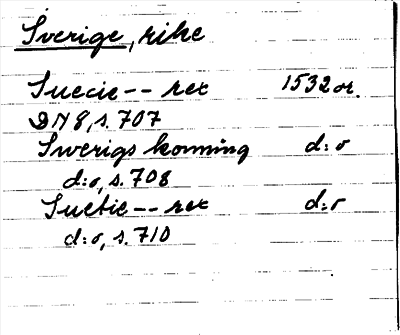 Sverige, rike
Suecie -- rex 1532 or.
DN 8, s. 707
Swerigs konning d:o
d:o, s. 708
Suetie -- rex d:o
d:o, s. 710